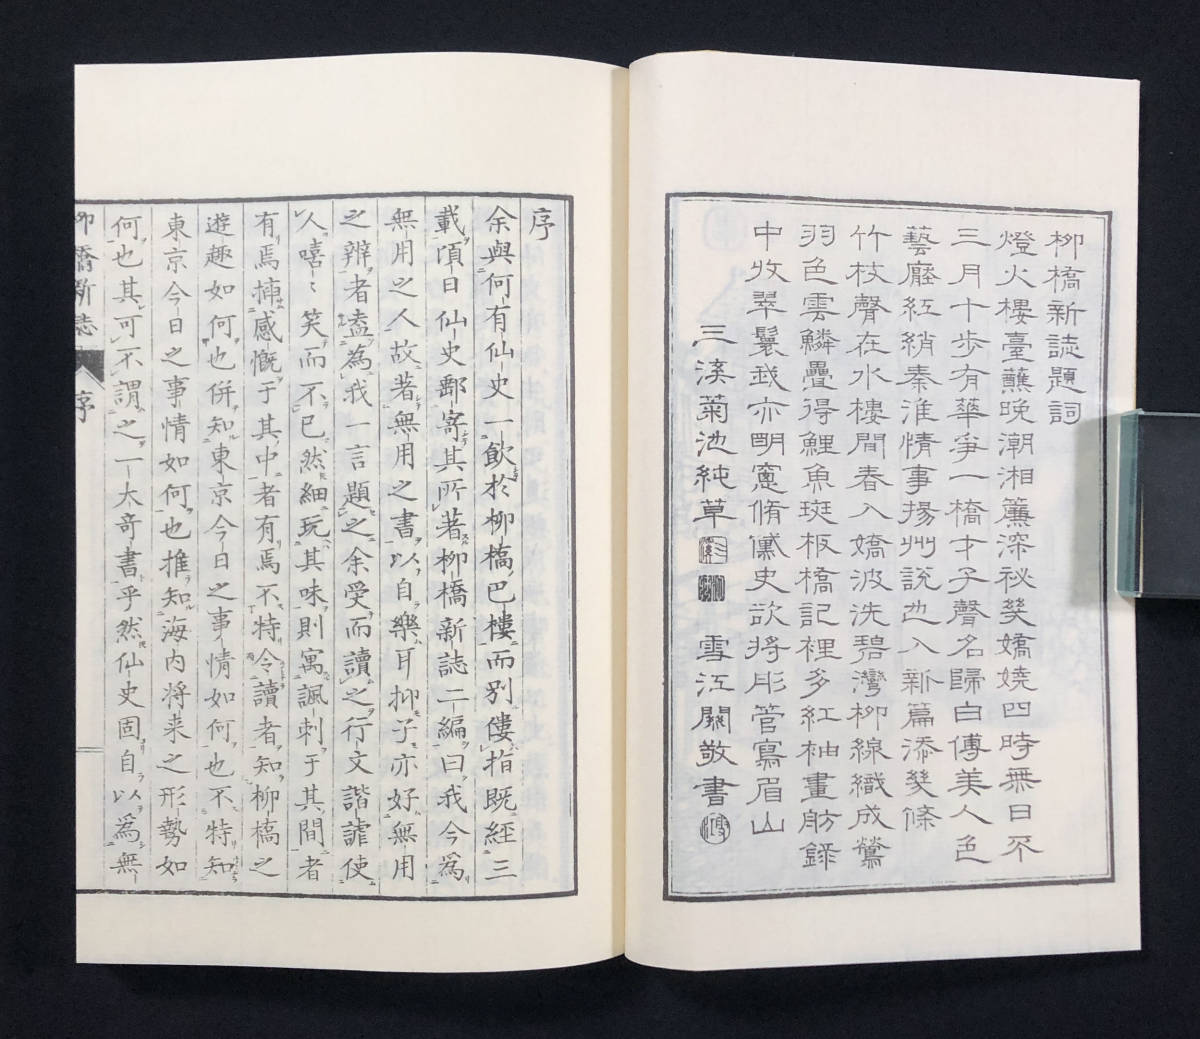 柳橋新誌題詞
燈火樓臺蘸晚潮湘簾深祕幾嬌嬈四時無日不
三月十步有華爭一橋才子聲名歸白傅美人色
藝壓紅綃秦淮情事揚州說也入新篇添幾條
竹枝聲在水樓間春入嬌波洗碧灣柳線織成鶯
羽色雲鱗疊得鯉魚斑板橋記裡多紅袖畫舫錄
中收翠鬟我亦明窻脩儀史欲將彤管寫眉山
三溪菊池純草
雪江關敬書
序
余與何有仙史一飲於柳橋巴樓而別僂指既經三
載項日仙史郵寄其所著柳橋新誌二編曰我今為
無用之人故著無用之書以自樂耳抑子亦好無用
之辨者盍為我一言題之余受而讀之行文諧謔使
人嘻〻笑而不已然細玩其味則寓諷刺于其間者
有焉揷感慨于其中者有焉不特令讀者知柳橋之
遊趣如何也併知東京今日之事情如何也不特知
東京今日之事情如何也推知海内將来之形勢如
何也其可不謂之一大奇書乎然仙史固自以為無
柳橋新誌 序